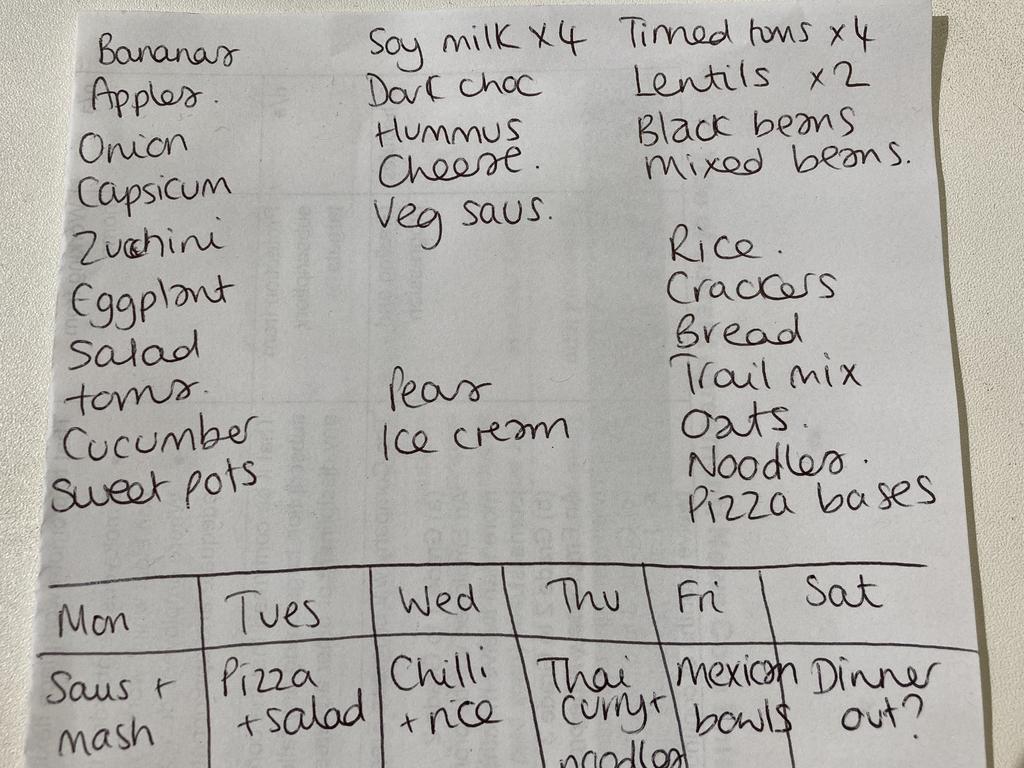 Bananas
Apples.
Onion
Capsicum
Zucchini
Eggplant
Salad
toms.
Cucumber
Sweet pots
Soy milk x4
Dark choc
Hummus
Cheese.
Veg saus.
Peas
Ice cream
Tinned toms x4
Lentils x2
Black beans
Mixed beans.
Rice.
Crackers
Bread
Trail mix
Oats.
Noodles.
Pizza bases
Mon
Tues
Wed
Thu
Fri
Sat
Saus +
mash
Pizza
+ salad
Chilli
+ rice
Thai
curry +
noodles
Mexican
bowls
Dinner
out?